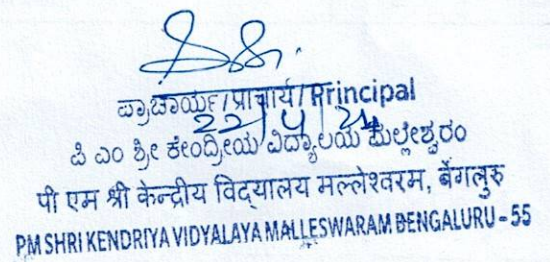 ಪ್ರಾಚಾರ್ಯ/प्राचार्य/Principal
ಪಿ ಎಂ ಶ್ರೀ ಕೇಂದ್ರೀಯ ವಿದ್ಯಾಲಯ ಮಲ್ಲೇಶ್ವರಂ
पी एम श्री केन्द्रीय विद्यालय मल्लेश्वरम, बेंगलुरु
PM SHRI KENDRIYA VIDYALAYA MALLESWARAM BENGALURU - 55